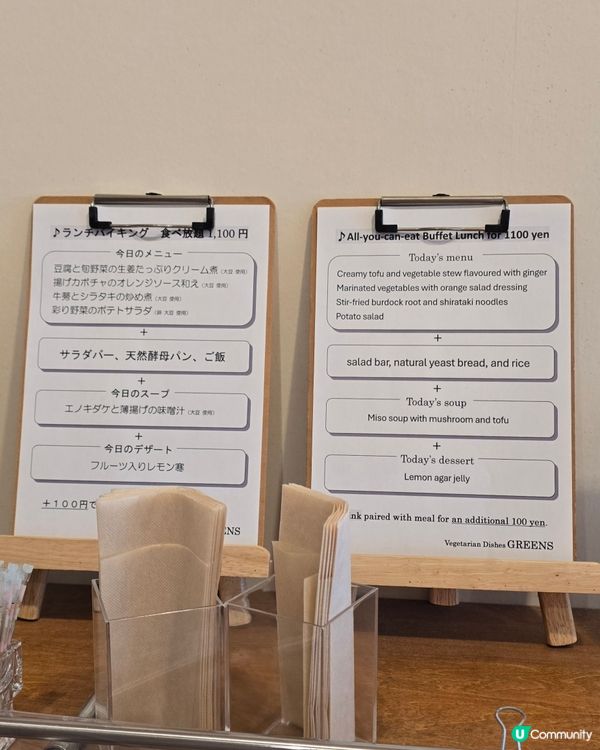 ♪ランチバイキング 食べ放題 1,100 円
今日のメニュー
豆腐と旬野菜の生姜たっぷりクリーム煮（大豆 使用）
揚げカボチャのオレンジソース和え（大豆 使用）
牛蒡とシラタキの炒め煮（大豆 使用）
彩り野菜のポテトサラダ（卵 大豆 使用）
+
サラダバー、天然酵母パン、ご飯
+
今日のスープ
エノキダケと薄揚げの味噌汁（大豆 使用）
+
今日のデザート
フルーツ入りレモン寒
＋１００円で
ENS
♪All-you-can-eat Buffet Lunch for 1100 yen
Today's menu
Creamy tofu and vegetable stew flavoured with ginger
Marinated vegetables with orange salad dressing
Stir-fried burdock root and shirataki noodles
Potato salad
+
salad bar, natural yeast bread, and rice
+
Today's soup
Miso soup with mushroom and tofu
+
Today's dessert
Lemon agar jelly
nk paired with meal for an additional 100 yen.
Vegetarian Dishes GREENS
U Community